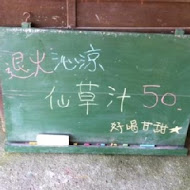 退火沁涼
仙草汁50.
好喝甘甜